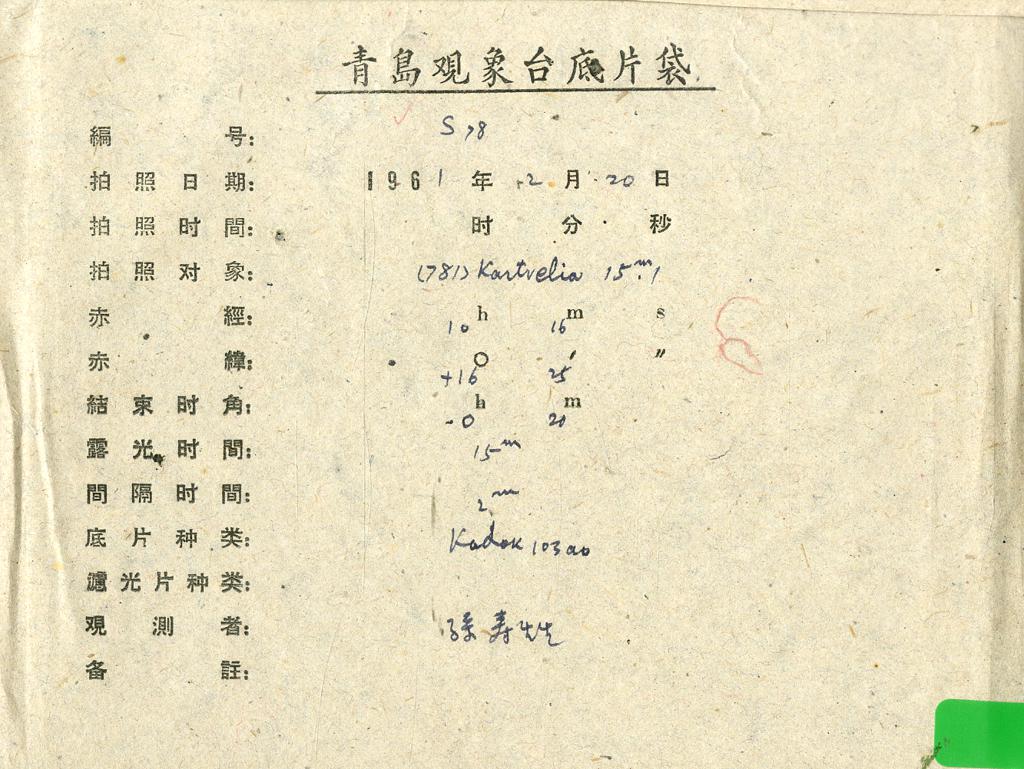 青島观象台底片袋
編号: S 78
拍照日期: 1961年 2月 20日
拍照时間: 时 分 秒
拍照对象: (781) Kartvelia 15ᵐ.1
赤經: 10ʰ 16ᵐ s
赤緯: +16° 25′ ″
結束时角: -0ʰ 20ᵐ
露光时間: 15ᵐ
間隔时間: 2ᵐ
底片种类: Kodak 103a0
濾光片种类:
观測者: 孫寿
备註: